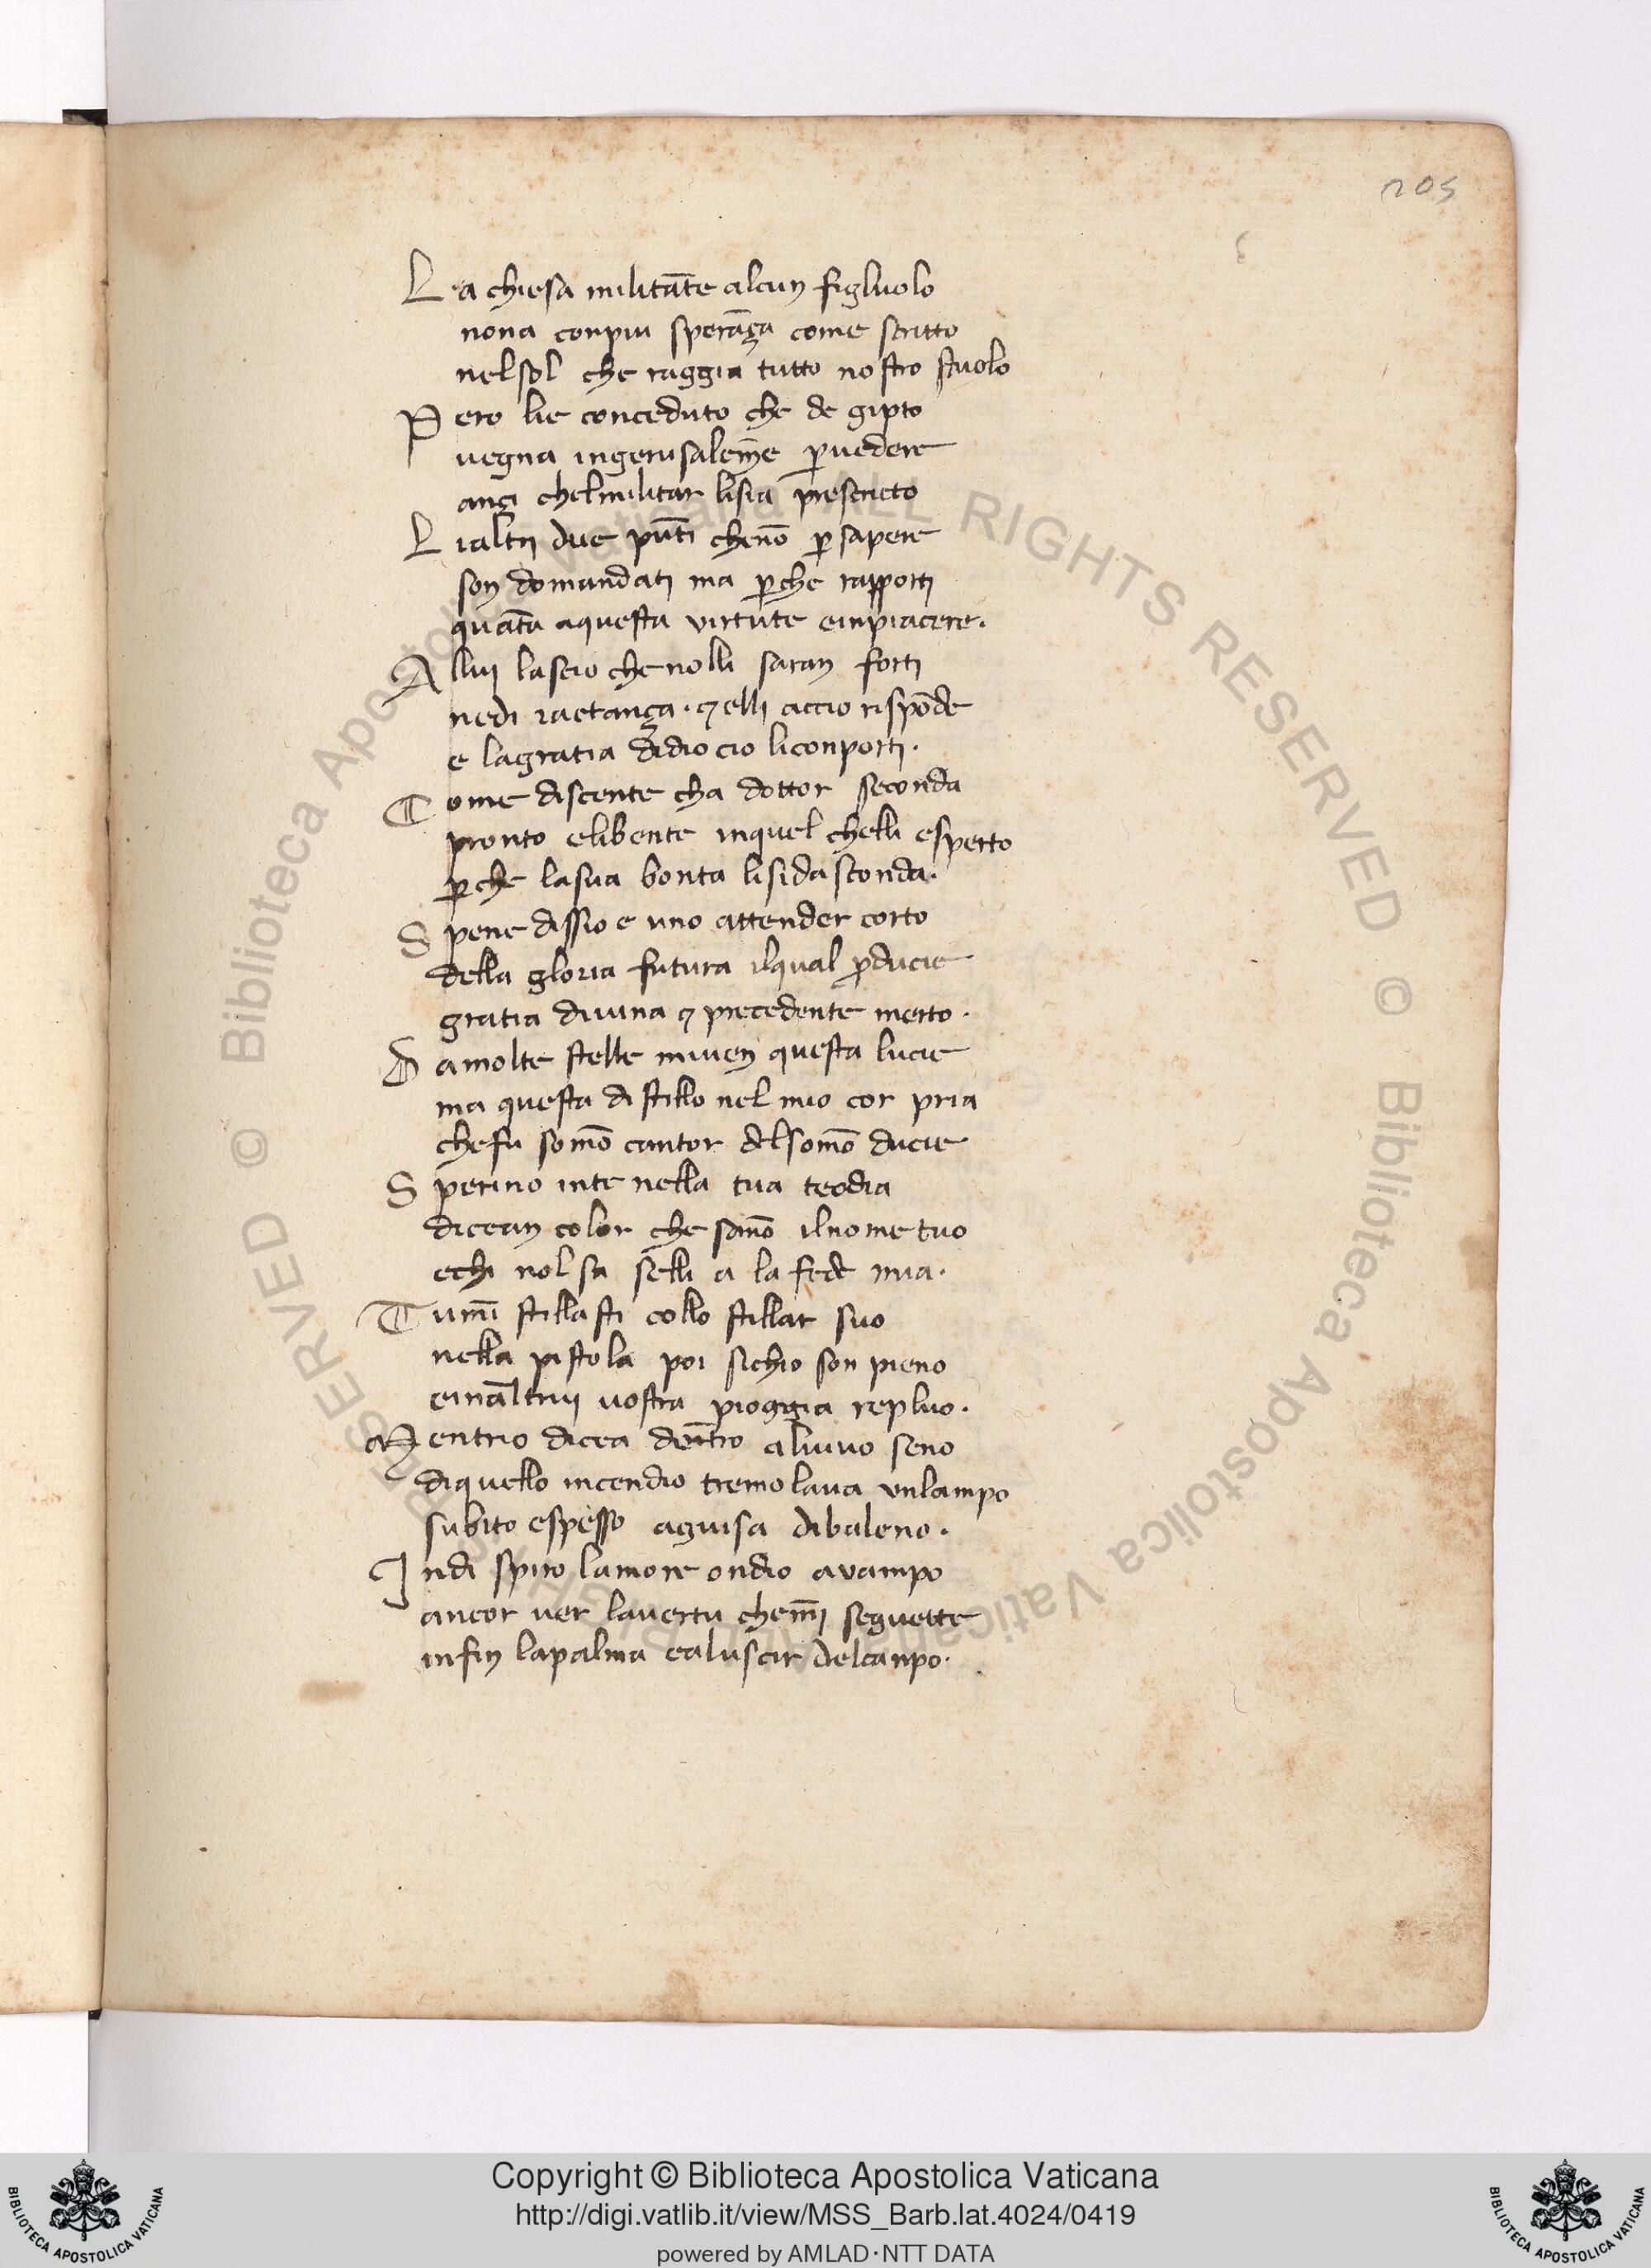 205
La chiesa militāte alcun figluolo
nona conpiu sperāça come scritto
nelsol che raggia tutto nostro stuolo
Pero lie conceduto che de gipto
uegna ingerusalem̄e ꝑuedere
ançi chelmilitar lisia prescricto
Lialtri due pūti chenō ꝑsapere
son domandati ma ꝑche rapporti
quāta aquesta virtute einpiacere.
Allui lascio chenolli saran forti
nedi iactança. ⁊ elli accio rispōde
e lagratia didio cio liconporti.
Come discente cha dottor seconda
pronto elibente inquel chelli esperto
ꝑche lasua bonta lisidasconda.
Spene dissio e uno attender corto
della gloria futura ilqual ꝓducie
gratia diuina ⁊ precedente merto.
Damolte stelle miuen questa lucie
ma questa distillo nel mio cor pria
chefu somō cantor delsomō ducie
Sperino inte nella tua teodia
dicean color che sanō ilnome tuo
echi nol sa selli a la fede mia.
Tumī stillasti collo stillar suo
nella pistola poi sichio son pieno
eināltrui uostra pioggia repluo.
Mentrio dicea dentro aluiuo seno
diquello incendio tremolaua vnlampo
subito espesso aguisa dibaleno.
Indi spiro lamore ondio avampo
ancor uer lauertu chem̄i seguette
infin lapalma ealuscir delcanpo.
© Biblioteca Apostolica Vaticana ALL RIGHTS RESERVED © Biblioteca Apostolica Vaticana ALL RIGHTS RESERVED
Copyright © Biblioteca Apostolica Vaticana
http://digi.vatlib.it/view/MSS_Barb.lat.4024/0419
powered by AMLAD·NTT DATA
BIBLIOTECA APOSTOLICA VATICANA
BIBLIOTECA APOSTOLICA VATICANA